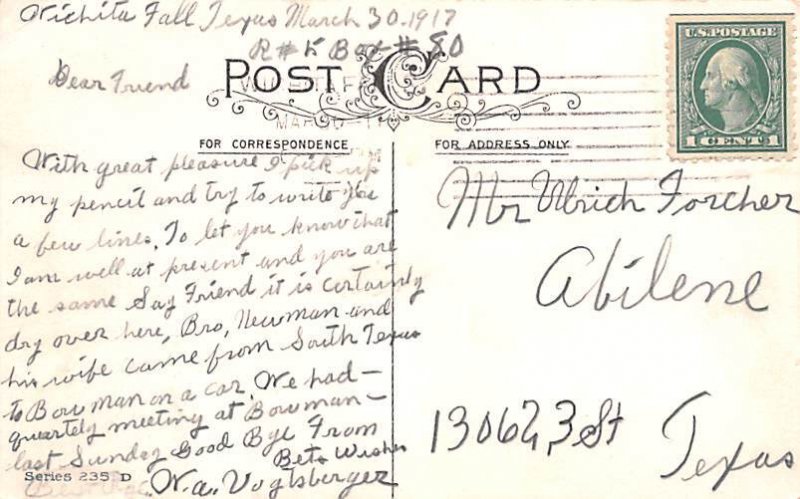 Wichita Fall Texas March 30. 1917
R#5 Box #80
Dear Friend
POST CARD
U.S. POSTAGE
1 CENT 1
FOR CORRESPONDENCE
FOR ADDRESS ONLY
With great pleasure I pick up
my pencil and try to write you
a few lines, To let you know that
I am well at present and you are
the same Say Friend it is certainly
dry over here, Bro, Newman and
his wife came from South Texas
to Bowman on a car, We had
quartely meeting at Bowman
last Sunday Good Bye From
Bets Wishes
W.A. Vogtsberger
Series 235 D
Mr Ulrich Forcher
Abilene
1306 2,3 St
Texas